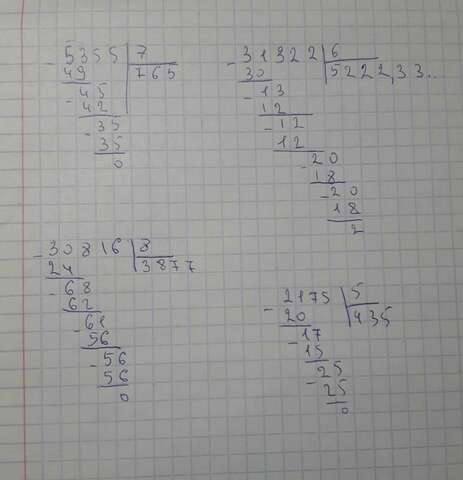 5355 7
49 765
45
42
35
35
0
31322 6
30 5222,33..
13
12
12
12
20
18
20
18
2
30816 8
24 3877
68
62
61
56
56
56
0
2175 5
20 435
17
15
25
25
0